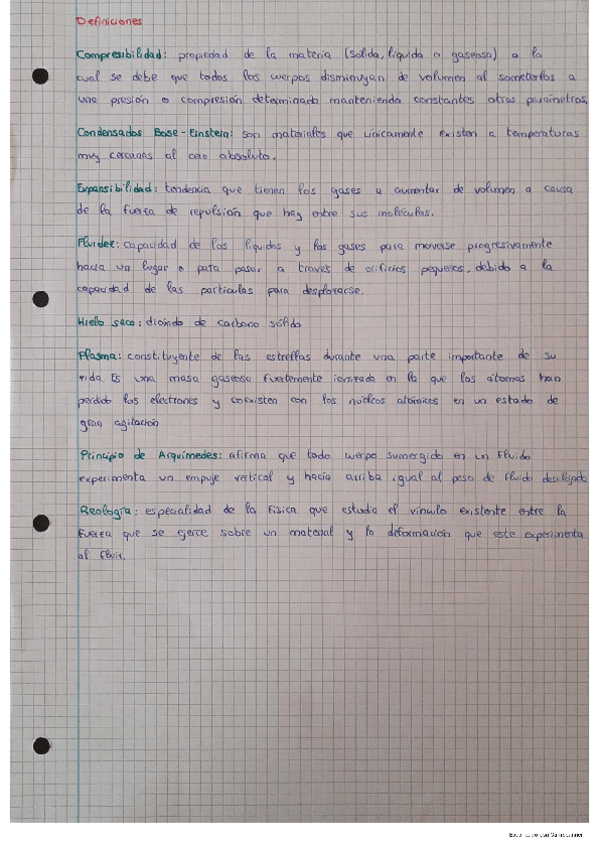 Definiciones
Compresibilidad: propiedad de la materia (solida, líquida o gaseosa) a la
cual se debe que todos los cuerpos disminuyan de volumen al someterlos a
una presión o compresión determinada manteniendo constantes otros parámetros.
Condensados Bose-Einstein: son materiales que únicamente existen a temperaturas
muy cercanas al cero absoluto.
Expansibilidad: tendencia que tienen los gases a aumentar de volumen a causa
de la fuerza de repulsión que hay entre sus moléculas.
Fluidez: capacidad de los líquidos y los gases para moverse progresivamente
hacia un lugar o para pasar a través de orificios pequeños, debido a la
capacidad de las partículas para desplazarse.
Hielo seco: dióxido de carbono sólido
Plasma: constituyente de las estrellas durante una parte importante de su
vida. Es una masa gaseosa fuertemente ionizada en la que los átomos han
perdido los electrones y coexisten con los núcleos atómicos en un estado de
gran agitación
Principio de Arquímedes: afirma que todo cuerpo sumergido en un fluido
experimenta un empuje vertical y hacia arriba igual al peso de fluido desalojado
Reología: especialidad de la física que estudia el vínculo existente entre la
fuerza que se ejerce sobre un material y la deformación que este experimenta
al fluir.